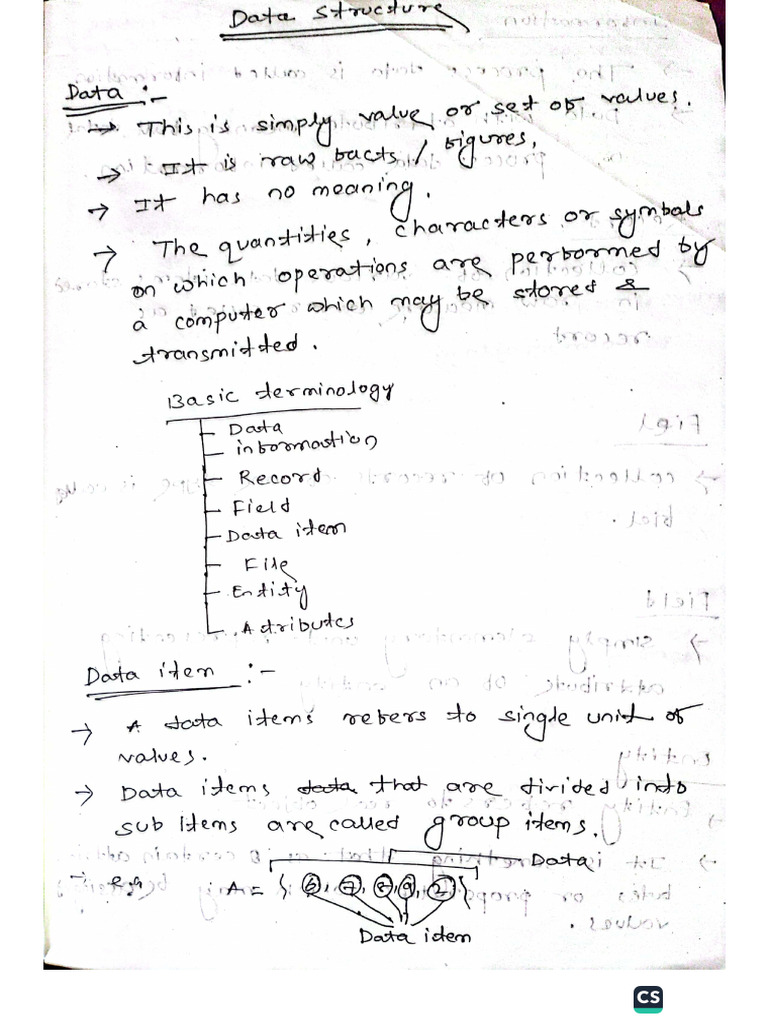 Data Structure
Data :-
→ This is simply value or set of values.
→ It is raw facts / figures,
→ It has no meaning.
→ The quantities, characters or symbols
on which operations are performed by
a computer which may be stored &
transmitted.
Basic terminology
Data
information
Record
Field
Data item
File
Entity
Attributes
Data item :-
→ A data items refers to single unit of
values.
→ Data items data that are divided into
sub items are called group items.
Data
→ e.g A = { 6, 7, 8, 9, 2 }
Data item
CS